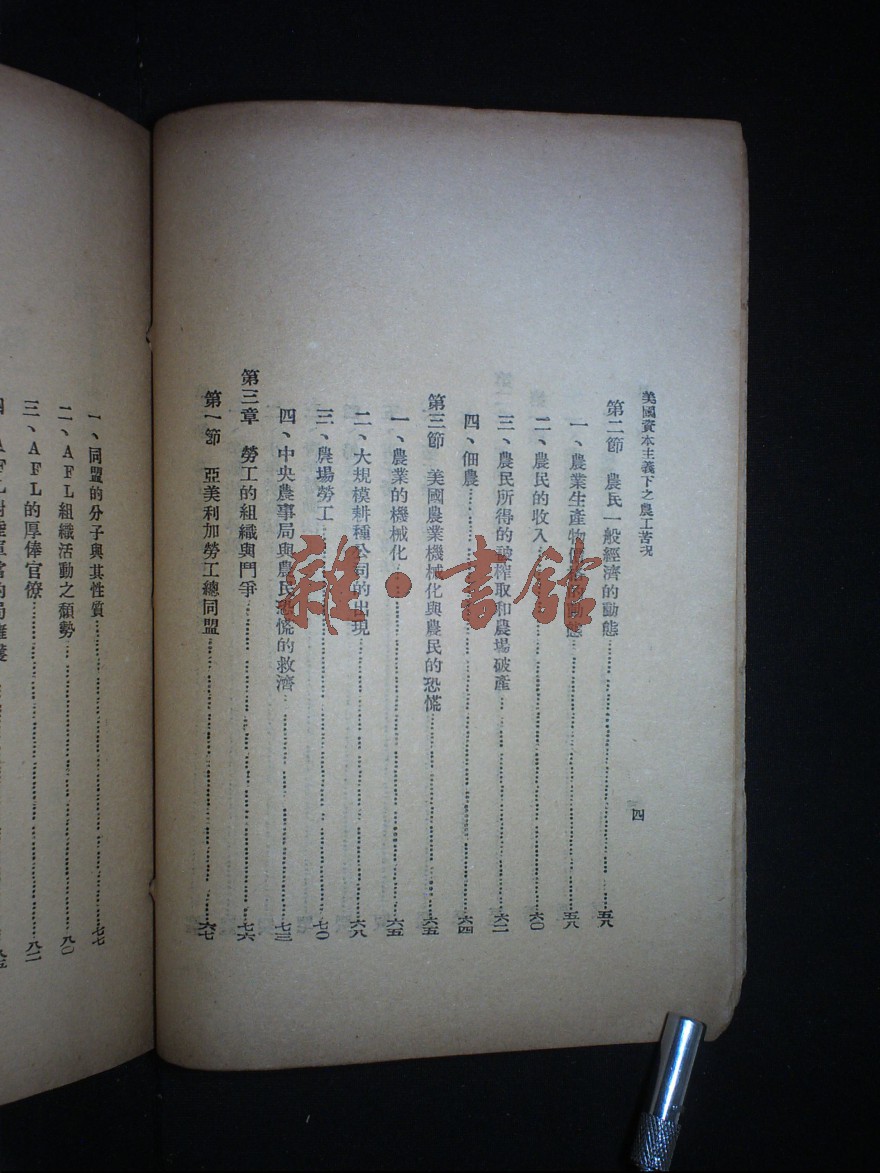 美國資本主義下之農工苦況
四
第二節 農民一般經濟的動態…………五八
一、農業生產物價格的動態…………五八
二、農民的收入…………六〇
三、農民所得的被榨取和農場破產…………六二
四、佃農…………六四
第三節 美國農業機械化與農民的恐慌…………六五
一、農業的機械化…………六五
二、大規模耕種公司的出現…………六八
三、農場勞工…………七〇
四、中央農事局與農民恐慌的救濟…………七三
第三章 勞工的組織與鬥爭…………七六
第一節 亞美利加勞工總同盟…………六七
一、同盟的分子與其性質…………七七
二、AFL組織活動之頹勢…………八〇
三、AFL的厚俸官僚…………八二
雜·書館